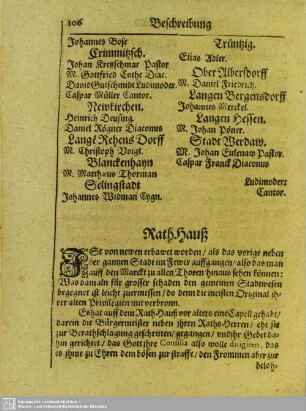 106 Beschreibung
Johannes Bose
Crimmitzsch.
Johan Kretzschmar Pastor
M. Gottfried Cothe Diac.
David Gutschmidt Ludimoder.
Caspar Müller Cantor.
Newkirchen.
Heinrich Deusing.
Daniel Rögner Diaconus
Langē Rehens Dorff
M. Christoph Voigt.
Blanckenhayn
M. Matthæus Thorman
Selingstadt
Johannes Widman Cygn.
Trüntzig.
Elias Adler.
Ober Albersdorff
M. Daniel Friedrich.
Langen Bergensdorff
Johannes Merckel.
Langen Hessen.
M. Johan Pöner.
Stadt Werdaw.
M. Johan Eulenaw Pastor.
Caspar Franck Diaconus
Ludimoder:
Cantor.
Rath-Hauß
IST von newen erbawet worden / als das vorige neben
der gantzen Stadt im Fewer auffgangen / also das man
auff den Marckt zu allen Thoren hinaus sehen können:
Was damaln für grosser schaden den gemeinen Stadtwesen
begegnet ist leicht zuermessen / do denn die meisten Original ihrer
alten Privilegien mit verbronn.
Es hat auff den Rath-Hauß vor alters eine Capell gehabt /
darein die Bürgermeister neben ihren Raths-Herren / ehe sie
zur Berathschlagung geschritten / gegangen / und ihr Gebet dahin
gerichtet / das Gott ihre Consilia also wolle dirigiren, das
es ihme zu Ehren dem bösen zur straffe / den Frommen aber zur
beloh-